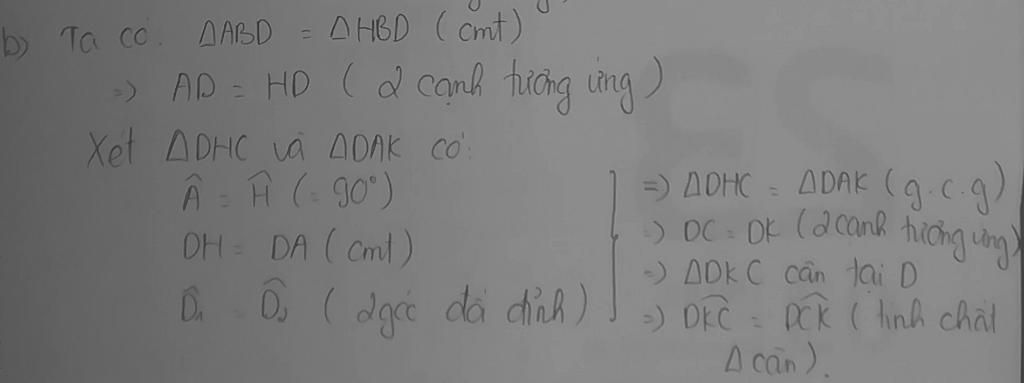 b) Ta có: ΔABD = ΔHBD (cmt)
=> AD = HD (2 cạnh tương ứng)
Xét ΔDHC và ΔDAK có:
Â = Ĥ (= 90°)
DH = DA (cmt)
D̂₁ = D̂₂ (2 góc đối đỉnh)
=> ΔDHC = ΔDAK (g.c.g)
=> DC = DK (2 cạnh tương ứng)
=> ΔDKC cân tại D
=> DK̂C = DĈK (tính chất
Δ cân).